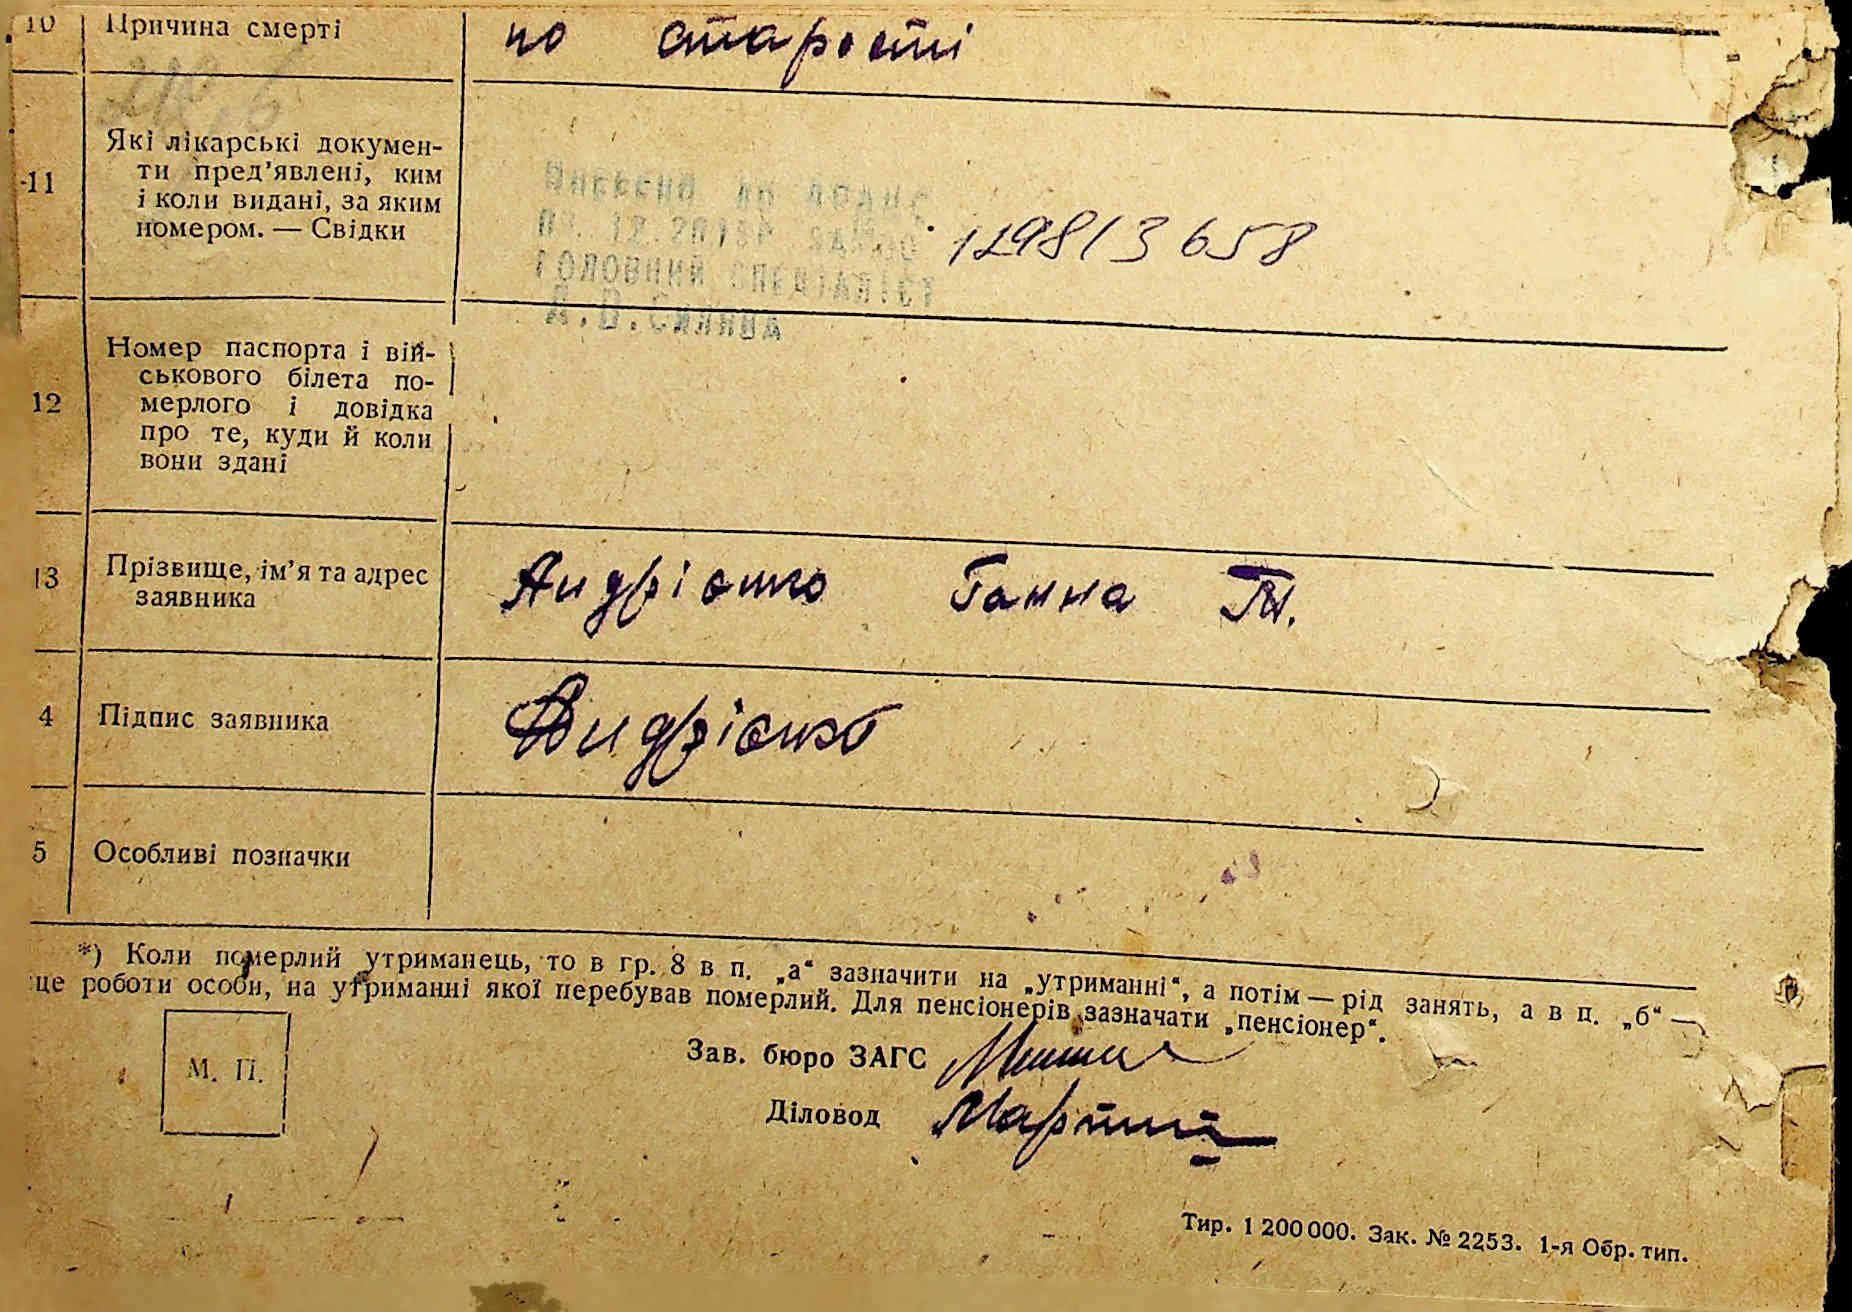 10 Причина смерті по старості
11 Які лікарські докумен-
ти пред’явлені, ким
і коли видані, за яким
номером. — Свідки
Внесено до ДРАЦС
ГОЛОВНИЙ СПЕЦІАЛІСТ
12983658
12 Номер паспорта і вій-
ськового білета по-
мерлого і довідка
про те, куди й коли
вони здані
13 Прізвище, ім’я та адрес
заявника
Андрієнко Ганна Т.
4 Підпис заявника Андрієнко
5 Особливі позначки
*) Коли померлий утриманець, то в гр. 8 в п. „а“ зазначити на „утриманні“, а потім — рід занять, а в п. „б“ —
це роботи особи, на утриманні якої перебував померлий. Для пенсіонерів зазначати „пенсіонер“.
М. П.
Зав. бюро ЗАГС
Діловод
Тир. 1 200 000. Зак. № 2253. 1-я Обр. тип.